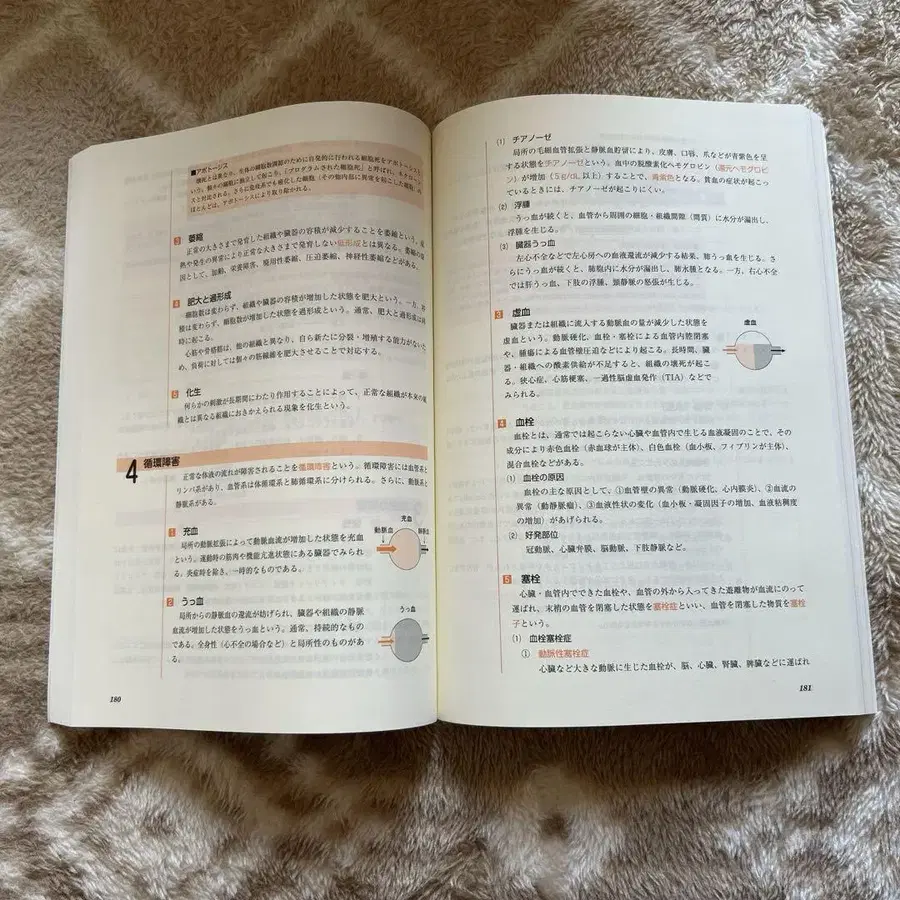 ■アポトーシス
壊死とは異なり、生体の細胞数調節のために自発的に行われる細胞死をアポトーシスと
いう。個々の細胞に独立して起こり、「プログラムされた細胞死」と呼ばれ、ネクローシ
スと対比される。さらに免疫系でも癌化した細胞（その他内部に異常を起こした細胞）の
ほとんどは、アポトーシスにより取り除かれる。
3 萎縮
正常の大きさまで発育した組織や臓器の容積が減少することを萎縮という。成
熟や発生の異常により正常な大きさまで発育しない低形成とは異なる。萎縮の原
因として、加齢、栄養障害、廃用性萎縮、圧迫萎縮、神経性萎縮などがある。
4 肥大と過形成
細胞数は変わらず、組織や臓器の容積が増加した状態を肥大という。一方、容
積は変わらず、細胞数が増加した状態を過形成という。通常、肥大と過形成は同
時に起こる。
心筋や骨格筋は、他の組織と異なり、自ら新たに分裂・増殖する能力がないた
め、負荷に対しては個々の筋線維を肥大させることで対応する。
5 化生
何らかの刺激が長期間にわたり作用することによって、正常な組織が本来の組
織とは異なる組織におきかえられる現象を化生という。
4 循環障害
正常な体液の流れが障害されることを循環障害という。循環障害には血管系と
リンパ系があり、血管系は体循環系と肺循環系に分けられる。さらに、動脈系と
静脈系がある。
1 充血
局所の動脈拡張によって動脈血流が増加した状態を充血
という。運動時の筋肉や機能亢進状態にある臓器でみられ
る。炎症時を除き、一時的なものである。
充血
動脈血
静脈血
2 うっ血
局所からの静脈血の還流が妨げられ、臓器や組織の静脈
血流が増加した状態をうっ血という。通常、持続的なもの
である。全身性（心不全の場合など）と局所性のものがあ
る。
うっ血
180
(1) チアノーゼ
局所の毛細血管拡張と静脈血貯留により、皮膚、口唇、爪などが青紫色を呈
する状態をチアノーゼという。血中の脱酸素化ヘモグロビン（還元ヘモグロビ
ン）が増加（5g/dL以上）することで、青紫色となる。貧血の症状が起こっ
ているときには、チアノーゼが起こりにくい。
(2) 浮腫
うっ血が続くと、血管から周囲の細胞・組織間隙（間質）に水分が漏出し、
浮腫を生じる。
(3) 臓器うっ血
左心不全などで左心房への血液還流が減少する結果、肺うっ血を生じる。さ
らにうっ血が続くと、肺胞内に水分が漏出し、肺水腫となる。一方、右心不全
では肝うっ血、下肢の浮腫、頸静脈の怒張が生じる。
3 虚血
臓器または組織に流入する動脈血の量が減少した状態を
虚血という。動脈硬化、血栓・塞栓による血管内腔閉塞
や、腫瘍による血管壁圧迫などにより起こる。長時間、臓
器・組織への酸素供給が不足すると、組織の壊死が起こ
る。狭心症、心筋梗塞、一過性脳虚血発作（TIA）などで
みられる。
虚血
4 血栓
血栓とは、通常では起こらない心臓や血管内で生じる血液凝固のことで、その
成分により赤色血栓（赤血球が主体）、白色血栓（血小板、フィブリンが主体）、
混合血栓などがある。
(1) 血栓の原因
血栓の主な原因として、①血管壁の異常（動脈硬化、心内膜炎）、②血流の
異常（動静脈瘤）、③血液性状の変化（血小板・凝固因子の増加、血液粘稠度
の増加）があげられる。
(2) 好発部位
冠動脈、心臓弁膜、脳動脈、下肢静脈など。
5 塞栓
心臓・血管内でできた血栓や、血管の外から入ってきた遊離物が血流にのって
運ばれ、末梢の血管を閉塞した状態を塞栓症といい、血管を閉塞した物質を塞栓
子という。
(1) 血栓塞栓症
① 動脈性塞栓症
心臓など大きな動脈に生じた血栓が、脳、心臓、腎臓、脾臓などに運ばれ
181